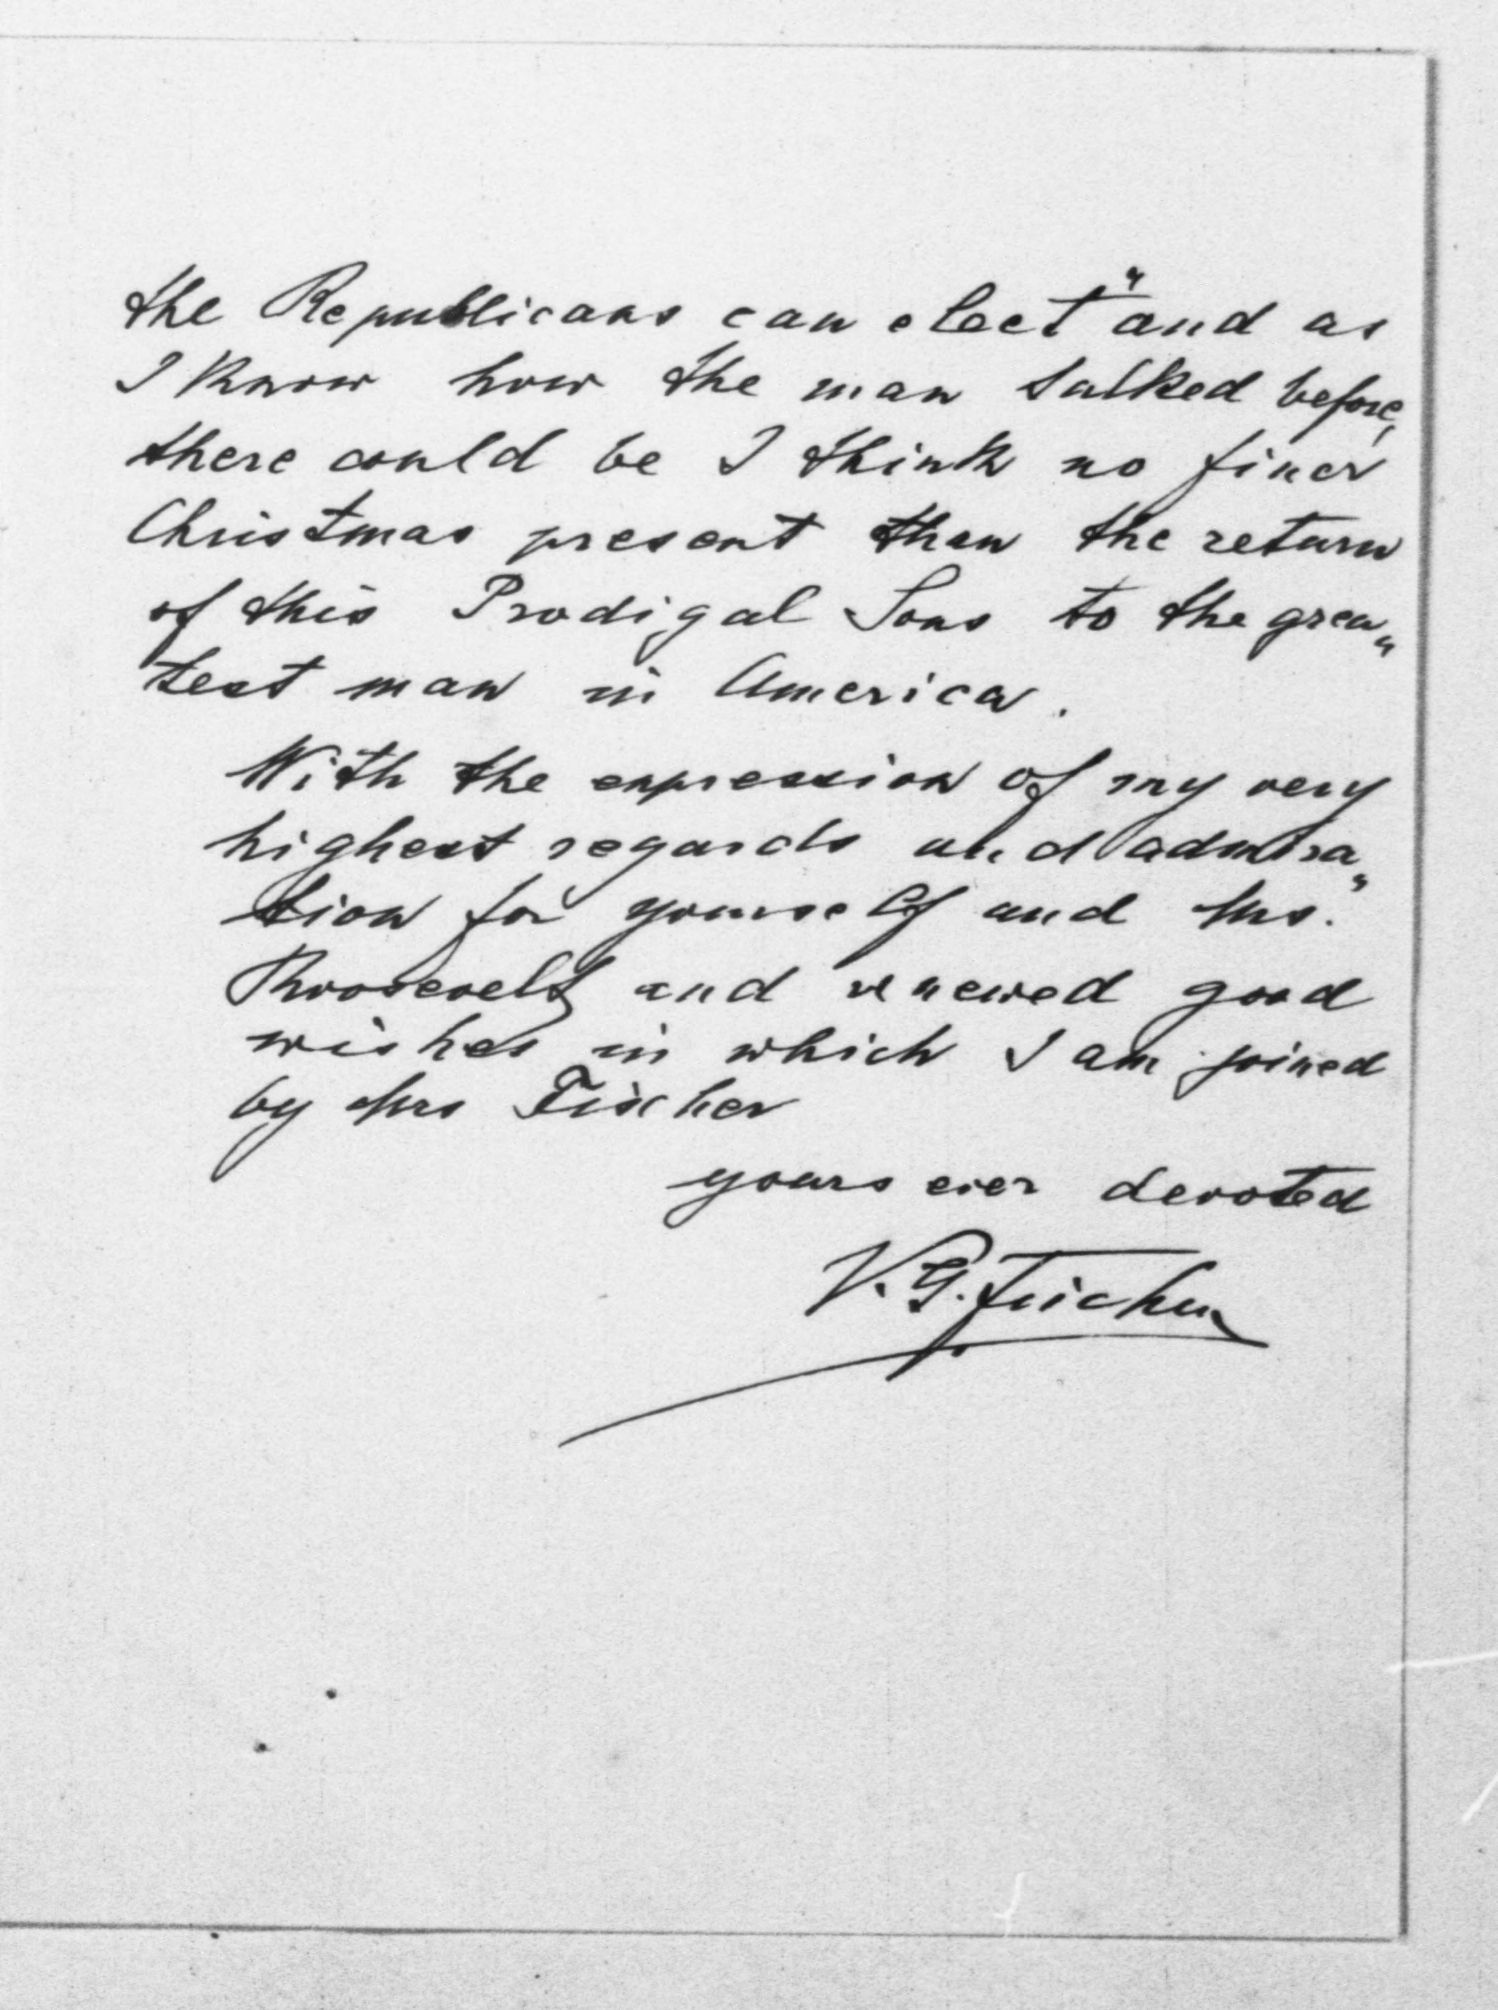 the Republicans can elect" and as
I know how the man talked before,
there could be I think no finer
Christmas present than the return
of this Prodigal Sons to the grea„
test man in America.
With the expression of my very
highest regards and admira„
tion for yourself and Mrs.
Roosevelt and renewed good
wishes in which I am joined
by Mrs Fischer
yours ever devoted
V. G. Fischer